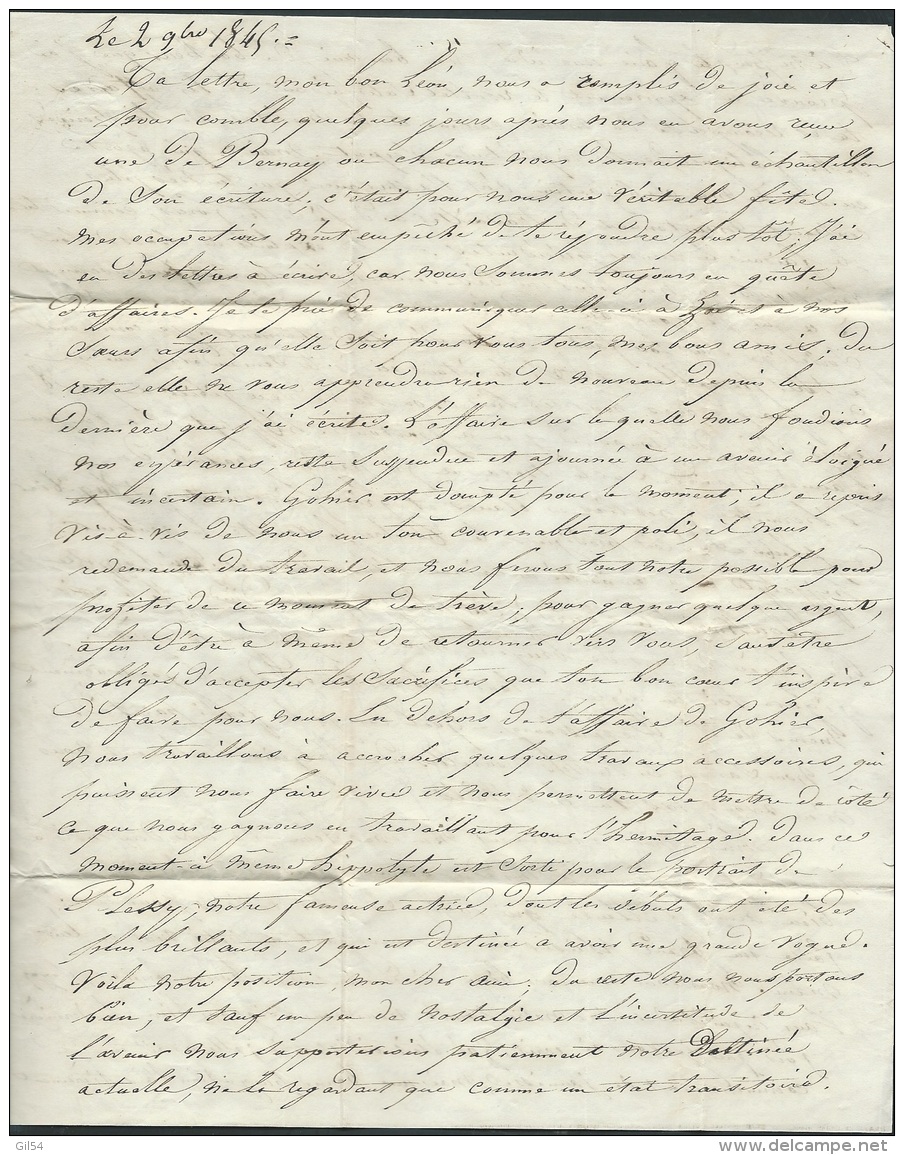 Le 2 9bre 1845.=
Ta lettre, mon bon Léon, nous a remplis de joie et
pour comble, quelques jours après nous en avons reçu
une de Bernay ou chacun nous donnait un échantillon
de son écriture; c'était pour nous une véritable fête.
Mes occupations m'ont empêché de te répondre plus tôt; j'ai
eu des lettres à écrire, car nous sommes toujours en quête
d'affaires. Je te prie de communiquer celle-ci à Zoé et à nos
Sœurs afin qu'elle soit pour vous tous, mes bons amis; du
reste elle ne vous apprendra rien de nouveau depuis la
dernière que j'ai écrite. L'affaire sur laquelle nous fondions
nos espérances, reste suspendue et ajournée à un avenir éloigné
et incertain. Gohier est dompté pour le moment; il a repris
vis-à-vis de nous un ton convenable et poli, il nous
redemande du travail, et nous ferons tout notre possible pour
profiter de ce moment de trève, pour gagner quelque argent,
afin d'être à même de retourner vers vous, sans être
obligés d'accepter les sacrifices que ton bon cœur t'inspire
de faire pour nous. En dehors de l'affaire de Gohier,
nous travaillons à accrocher quelques travaux accessoires, qui
puissent nous faire vivre et nous permettent de mettre de côté
ce que nous gagnons en travaillant pour l'hermitage. Dans ce
moment-ci même hippolyte est sorti pour le portrait de
Plessy, notre fameuse actrice, dont les débuts ont été des
plus brillants, et qui est destinée a avoir une grande vogue.
Voilà notre position, mon cher ami; du reste nous nous portons
bien, et sauf un peu de nostalgie et l'incertitude de
l'avenir nous supporterions patiemment notre Destinée
actuelle, ne la regardant que comme un état transitoire.
Gil54
delcampe.net